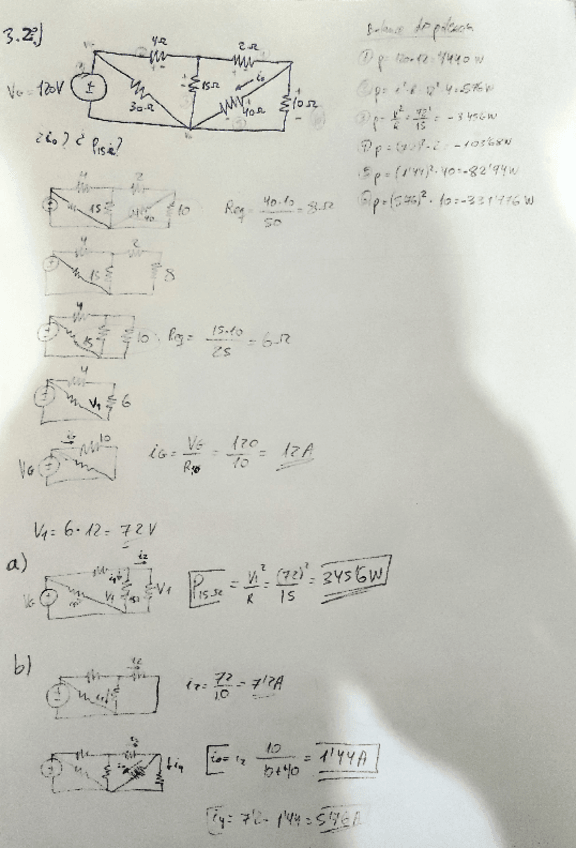 3.2º)
4Ω 2Ω
V_G = 120V 30Ω 15Ω i₀ 40Ω 10Ω
¿i₀? ¿P₁₅Ω?
Balance de potencia
① p= 120·12 = 1440 W
② p= i²·R = 12²·4 = 576 W
③ p= V²/R = 72²/15 = -345'6 W
④ p= (7'2)²·2 = -103'68 W
⑤ p= (1'44)²·40 = -82'94 W
⑥ p= (5'76)²·10 = -331'776 W
4 2
15 40 10
Req = 40·10/50 = 8Ω
4 2
15 8
4
15 10 Req = 15·10/25 = 6Ω
4
V₁ 6
10
V_G
i_G = V_G/R = 120/10 = 12A
V₁ = 6·12 = 72V
a)
V_G V₁ 15Ω V₁
P₁₅Ω = V₁²/R = (72)²/15 = 345'6 W
b)
i₂ = 72/10 = 7'2A
i₀ = i₂ 10/10+40 = 1'44A
i₄ = 7'2 - 1'44 = 5'76A